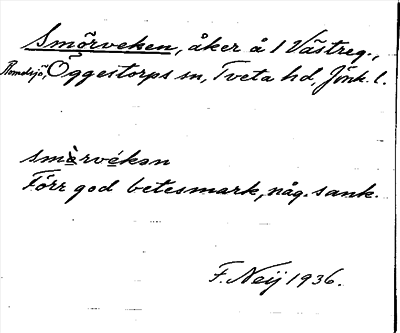 Smörveken, åker å 1 Västreg.,
Romelsjö, Öggestorps sn, Tveta hd, Jönk. l.
smèrvékən
Förr god betesmark, någ. sank.
F. Neij 1936.